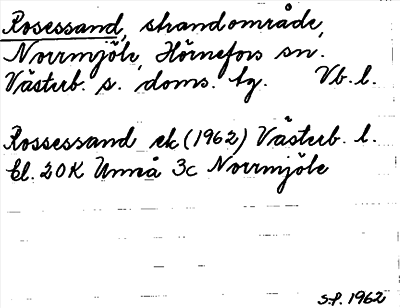 Rosessand, strandområde,
Norrmjöle, Hörnefors sn.
Västerb. s. doms. tg. Vb. l.
Rossessand ek (1962) Västerb. l.
bl. 20K Umeå 3c Norrmjöle
S.P. 1962